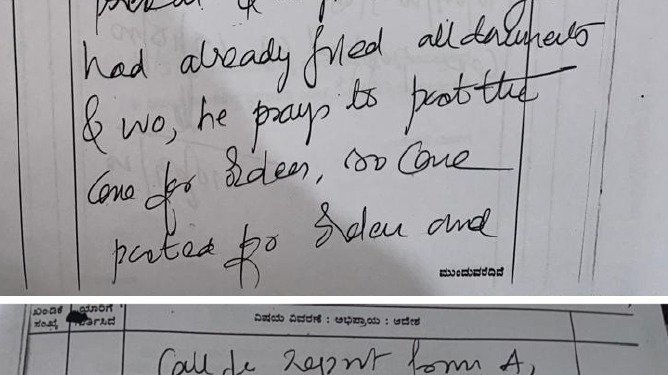 had already filed all documents
& WO, he prays to post the
case for orders, so Case
posted for orders and
ಮುಂದುವರೆದಿದೆ
ಖಂಡಿಕೆ ಯಾರಿಗೆ
ಸಂಖ್ಯೆ
ವಿಷಯ ವಿವರಣೆ : ಅಭಿಪ್ರಾಯ : ಆದೇಶ
Call for report form A,